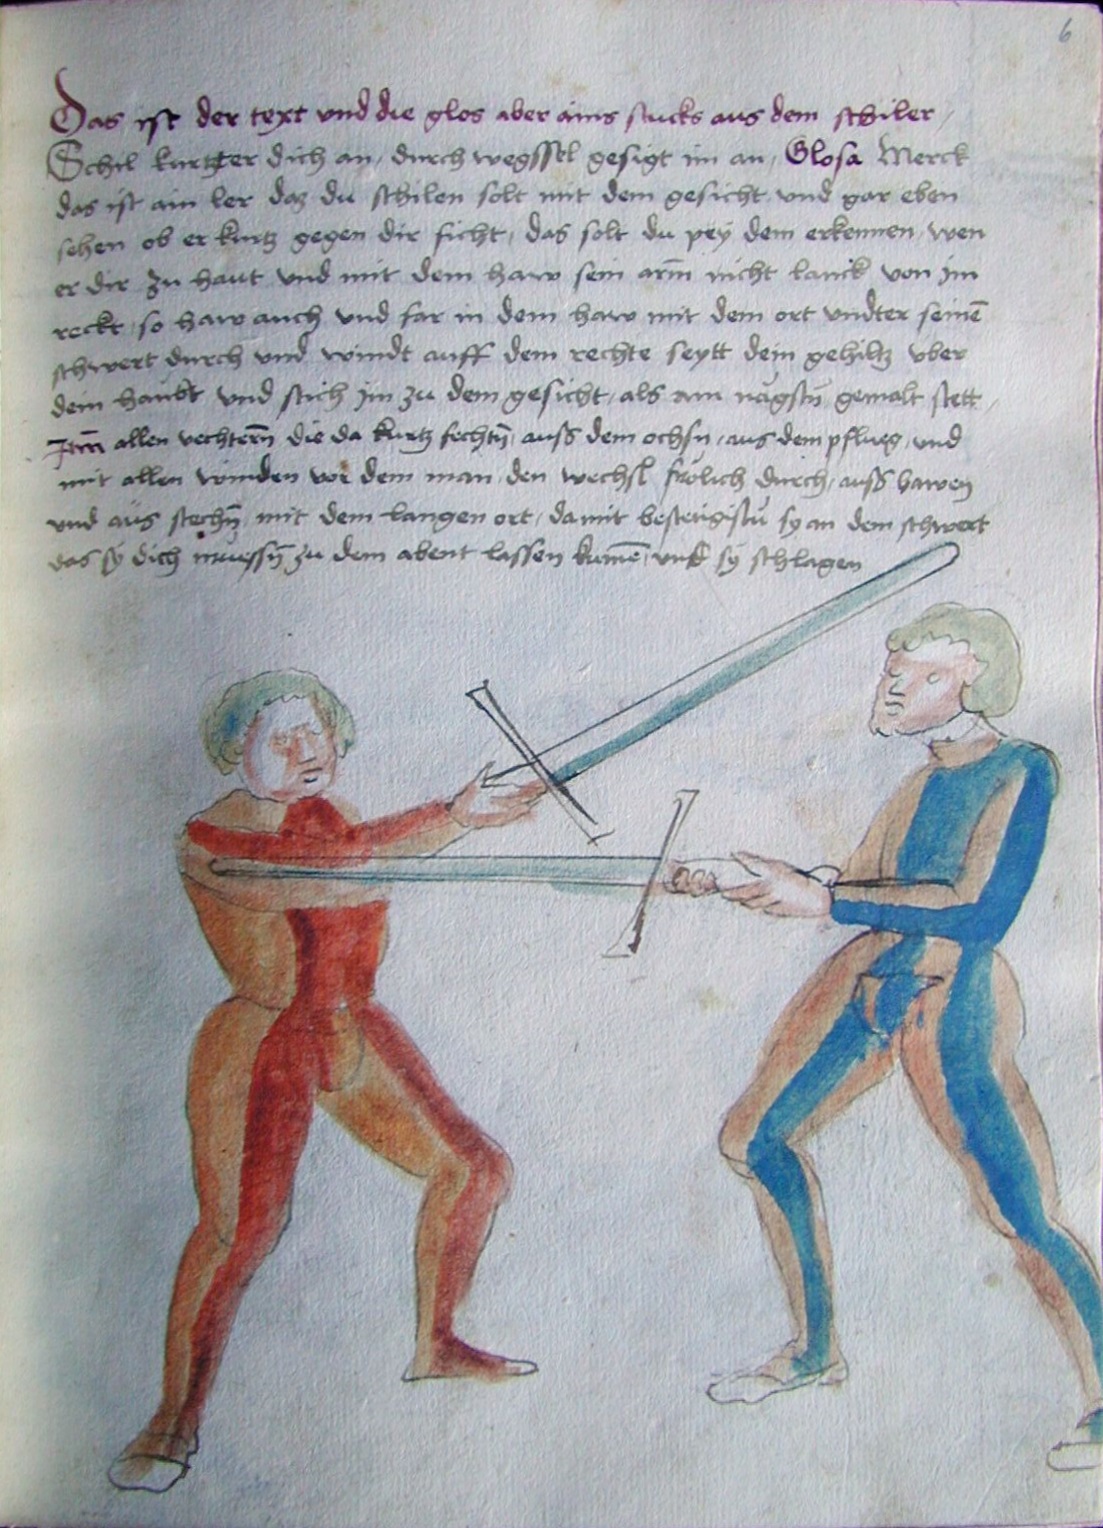 6
Das ist der text vnd die glos aber ains stucks aus dem schiler /
Schil kurtzter dich an / durch wegssel gesigt im an / Glosa Merck
das ist ain ler daz du schilen solt mit dem gesicht vnd gar eben
sehen ob er kurtz gegen dir ficht / das solt du pey dem erkennen wen
er dir zu haut vnd mit dem haw sein arm̄ nicht lanck von im
reckt / so haw auch vnd far in dem haw mit dem ort vndter seinē
schwert durch vnd windt auff dem rechte seytt dein gehiltz vber
dein haubt vnd stich im zu dem gesicht / als am nagstn̄ gemalt stett /
Itm̄ allen vechtern̄ die da kurtz fechtn̄ / auss dem ochsn / aus dem pflueg / vnd
mit allen winden vor dem man / den wechsl frölich durch / auss hawen
vnd aus stechn̄ / mit dem langen ort / damit bestetigistu sy an dem schwert
das sy dich muessn̄ zu dem abent lassen kumē / vnd sy schlagen